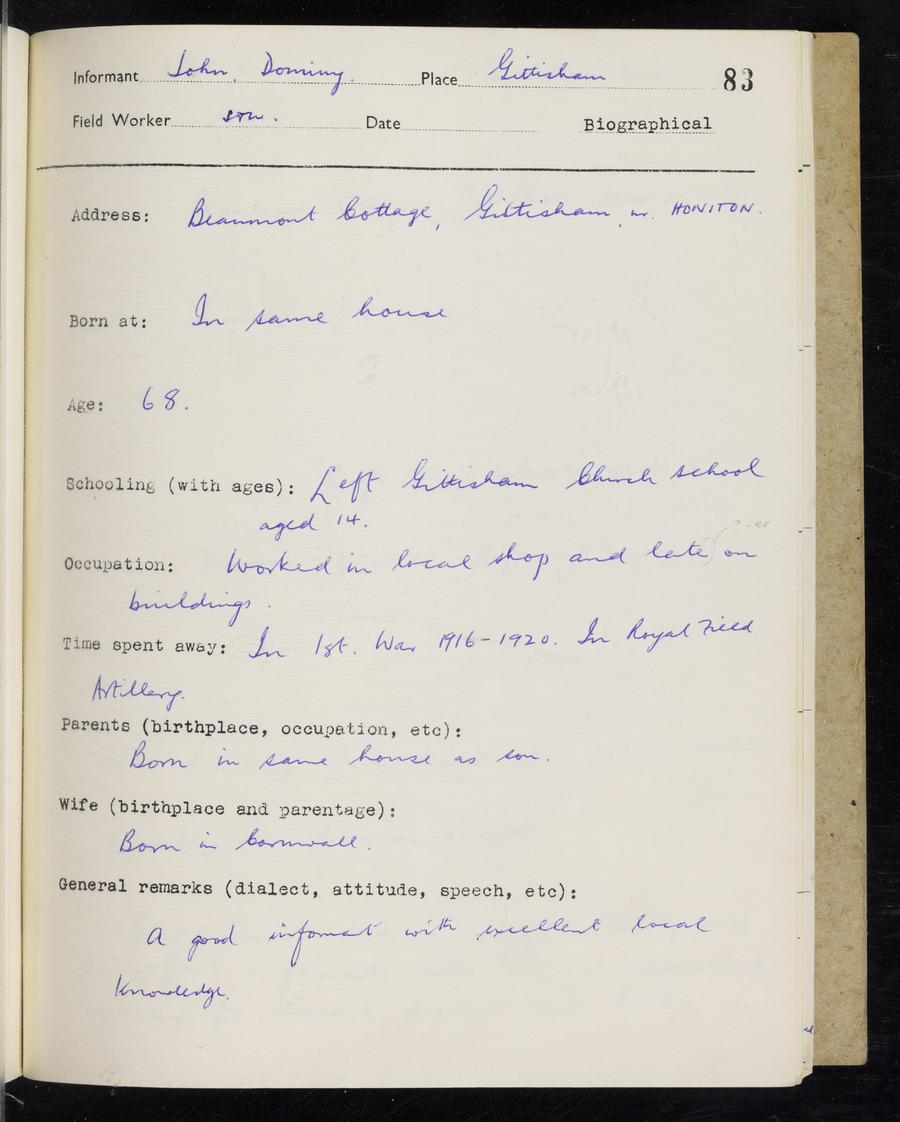 Informant John. Dominy. Place Gittisham 83
Field Worker Date Biographical
Address: Beaumont Cottage, Gittisham, nr. HONITON.
Born at: In same house
Age: 68.
Schooling (with ages): Left Gittisham Church school
aged 14.
? -er
Occupation: Worked in local shop and late on
buildings.
Time spent away: In 1st. War 1916-1920. In Royal Field
Artillery.
Parents (birthplace, occupation, etc):
Born in same house as son.
Wife (birthplace and parentage):
Born in Cornwall.
General remarks (dialect, attitude, speech, etc):
A good informant with excellent local
knowledge.